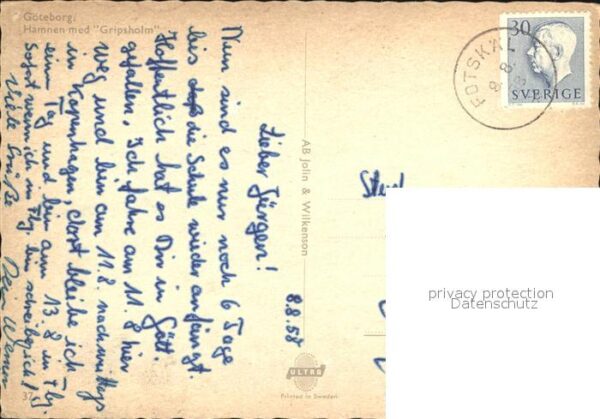 Göteborg.
Hamnen med "Gripsholm"
8.8.58
Lieber Jürgen!
Nun sind es nur noch 6 Tage
bis daß die Schule wieder anfängt.
Hoffentlich hat es Dir in Gött.
gefallen. Ich fahre am 11.8 hier
weg und bin am 11.8. nachmittags
in Kopenhagen, dort bleibe ich
einen Tag und bin am 13.8 in Flbg.
Sofort wenn ich in Flbg. bin schreibe ich!
Viele Grüße Dein
AB Jolin & Wilkenson
ULTRA
Printed in Sweden
37
30
SVERIGE
FOTSKÄL
8.8.
privacy protection
Datenschutz